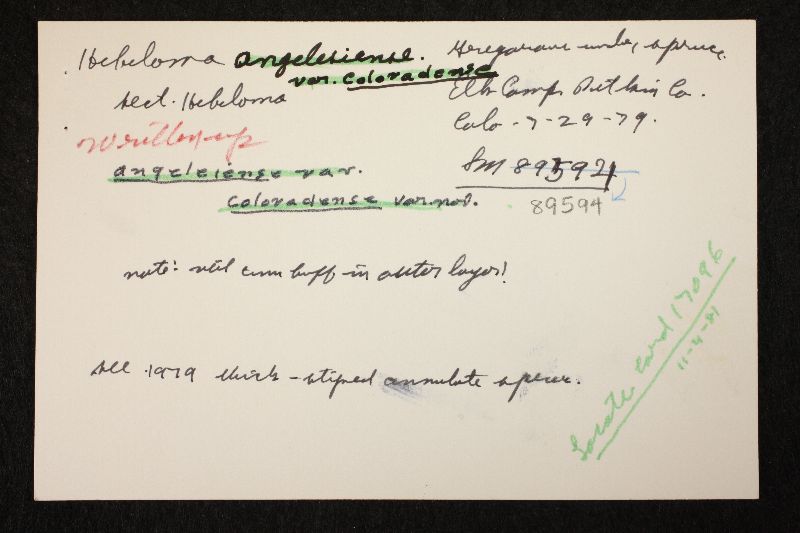 Hebeloma angelesiense.
var. Coloradense
sect. Hebeloma
Written-up
angelesiense var.
Coloradense var. nov.
Gregarious under spruce.
Elk Camp Pitkin Co.
Colo - 7-29-79.
Sm 89592
89594
note: veil cinn buff in outer layer!
see 1979 thick-stiped annulate specm.
Locater card 17096
11-4-81